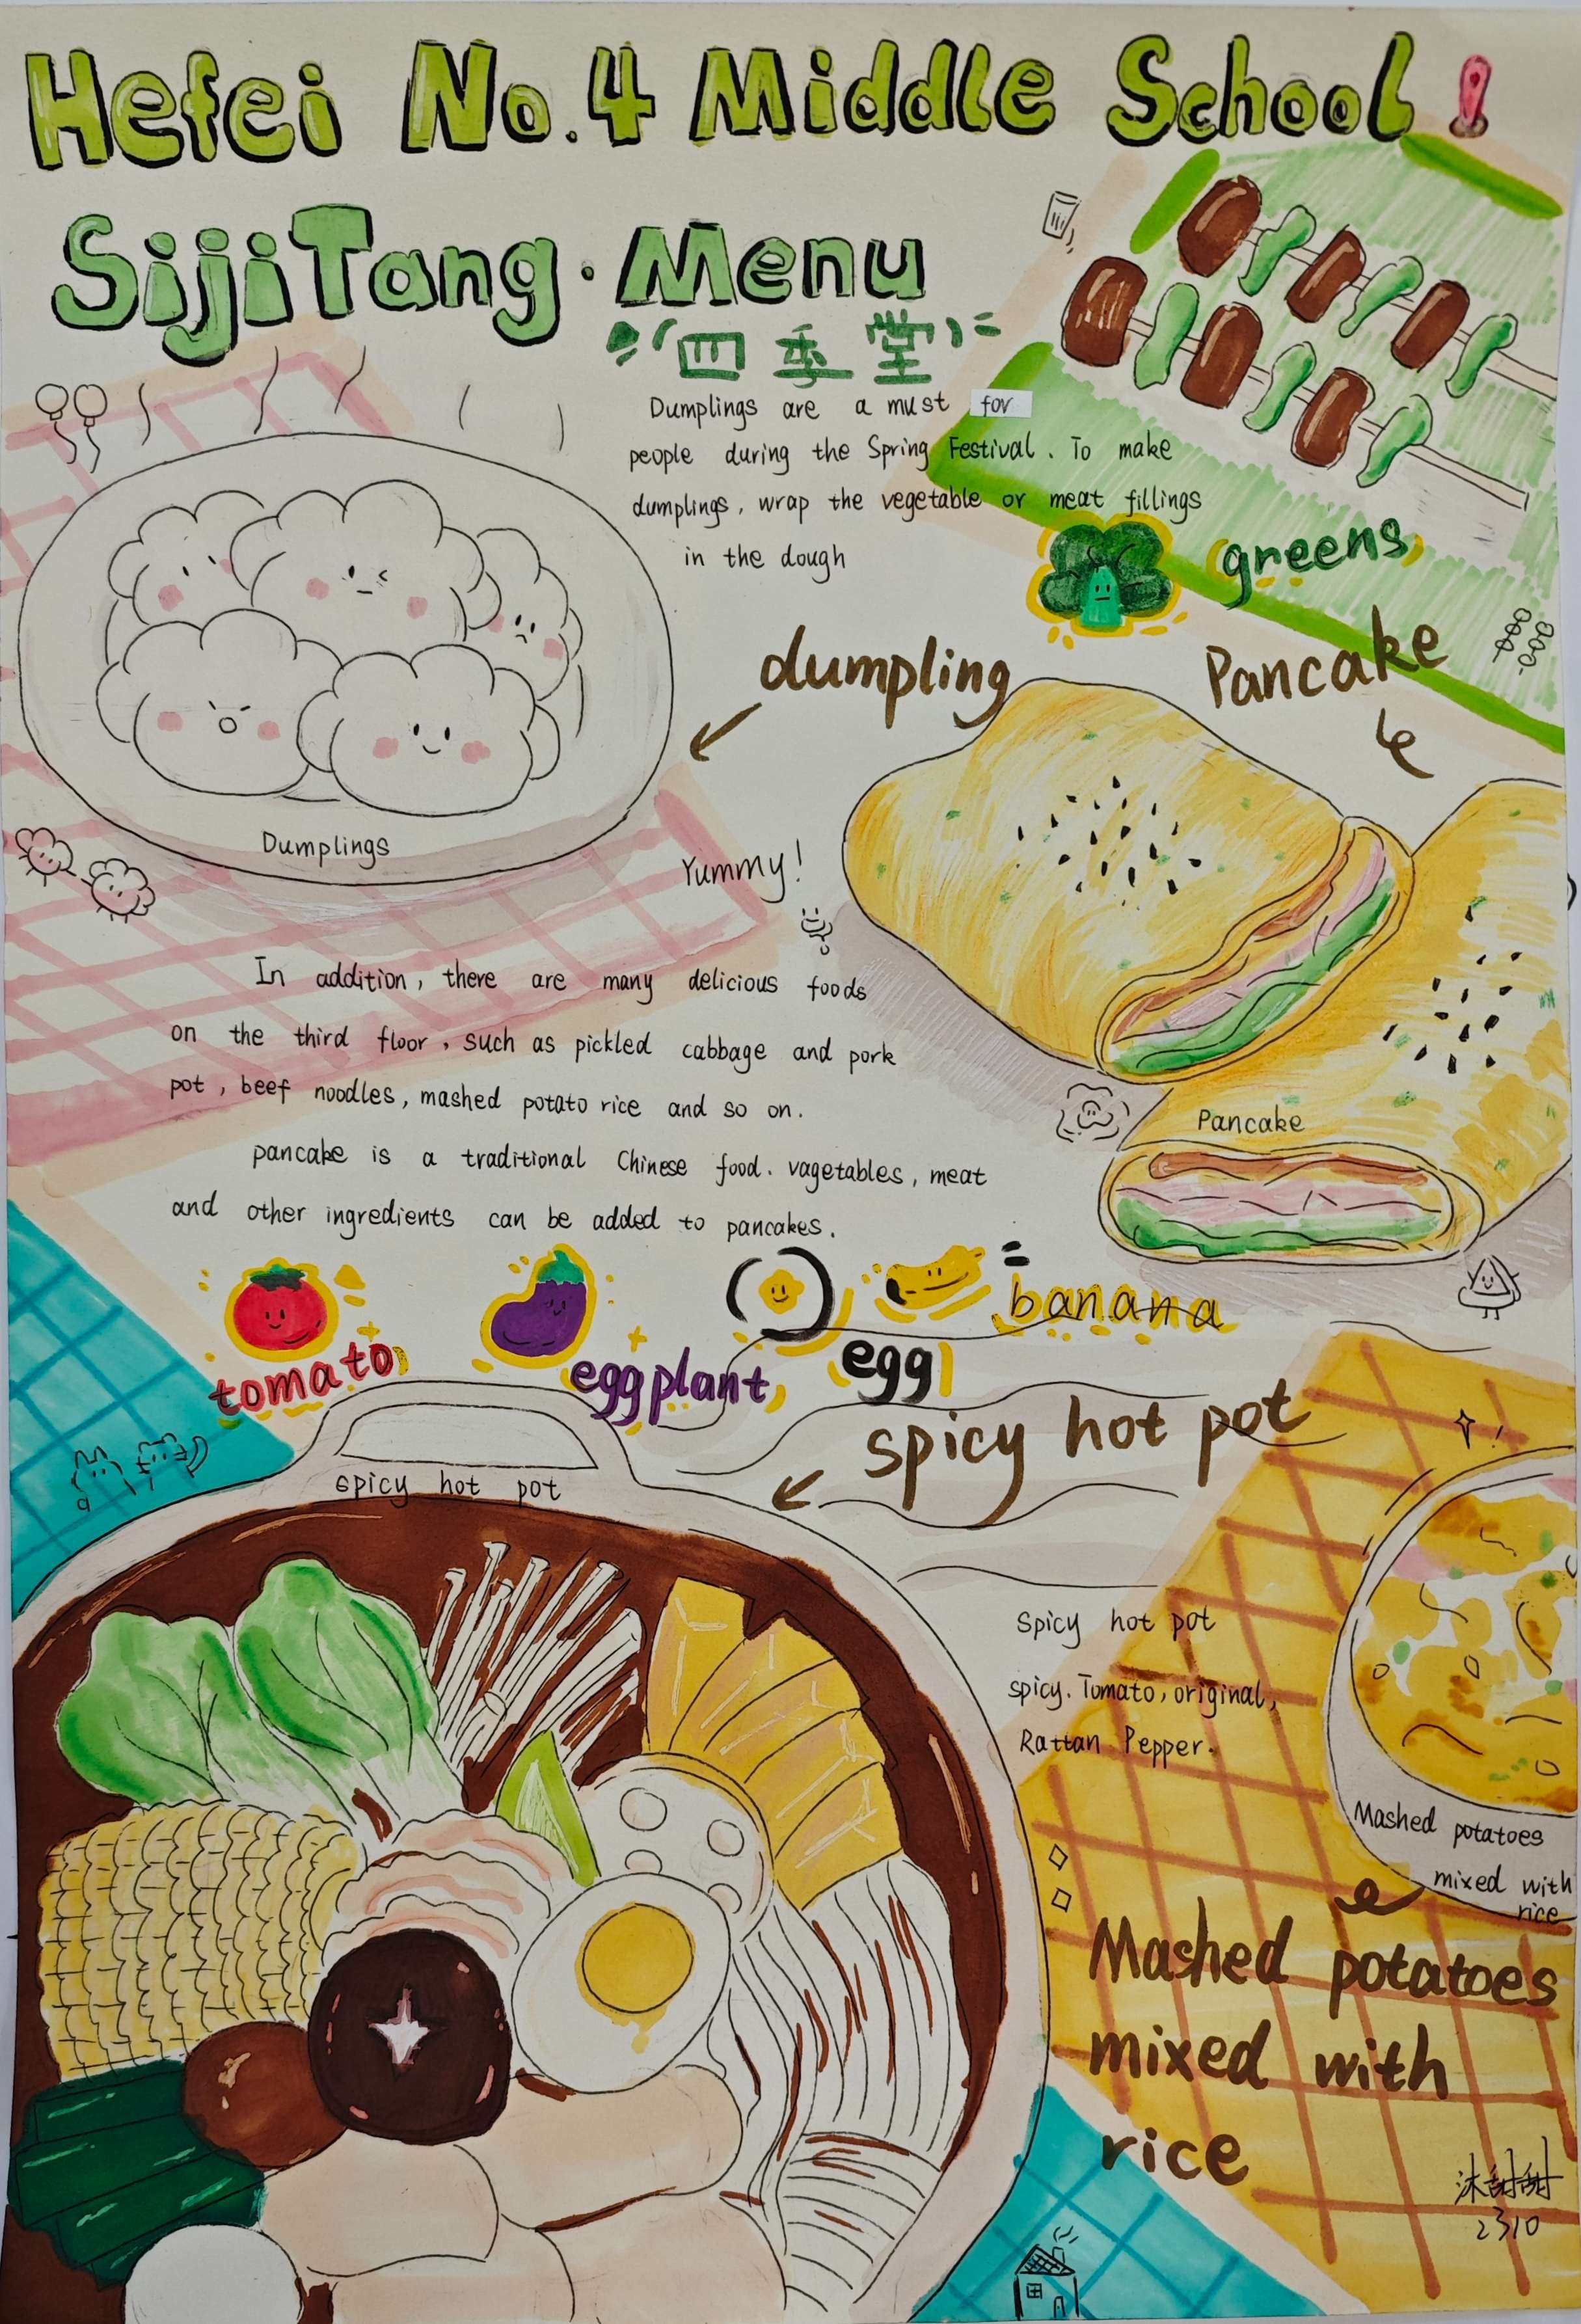 Hefei No.4 Middle School!
SijiTang·Menu
(四季堂)
Dumplings are a must for
people during the Spring Festival. To make
dumplings, wrap the vegetable or meat fillings
in the dough
greens
dumpling
Pancake
Dumplings
Yummy!
In addition, there are many delicious foods
on the third floor, such as pickled cabbage and pork
pot, beef noodles, mashed potato rice and so on.
pancake is a traditional Chinese food. vagetables, meat
and other ingredients can be added to pancakes.
Pancake
tomato
eggplant
egg
banana
spicy hot pot
spicy hot pot
Spicy hot pot
spicy. Tomato, original,
Rattan Pepper.
Mashed potatoes
mixed with
rice
Mashed potatoes
mixed with
rice
沐甜甜
2310